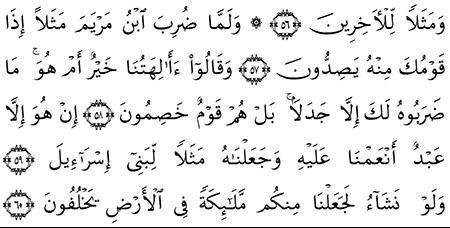 وَمَثَلًا لِّلْأَخِرِينَ ٥٦ ۞ وَلَمَّا ضُرِبَ ٱبْنُ مَرْيَمَ مَثَلًا إِذَا
قَوْمُكَ مِنْهُ يَصِدُّونَ ٥٧ وَقَالُوٓا۟ ءَأَٰلِهَتُنَا خَيْرٌ أَمْ هُوَ ۚ مَا
ضَرَبُوهُ لَكَ إِلَّا جَدَلًۢا ۚ بَلْ هُمْ قَوْمٌ خَصِمُونَ ٥٨ إِنْ هُوَ إِلَّا
عَبْدٌ أَنْعَمْنَا عَلَيْهِ وَجَعَلْنَٰهُ مَثَلًا لِّبَنِىٓ إِسْرَٰٓءِيلَ ٥٩
وَلَوْ نَشَآءُ لَجَعَلْنَا مِنكُم مَّلَٰٓئِكَةً فِى ٱلْأَرْضِ يَخْلُفُونَ ٦٠